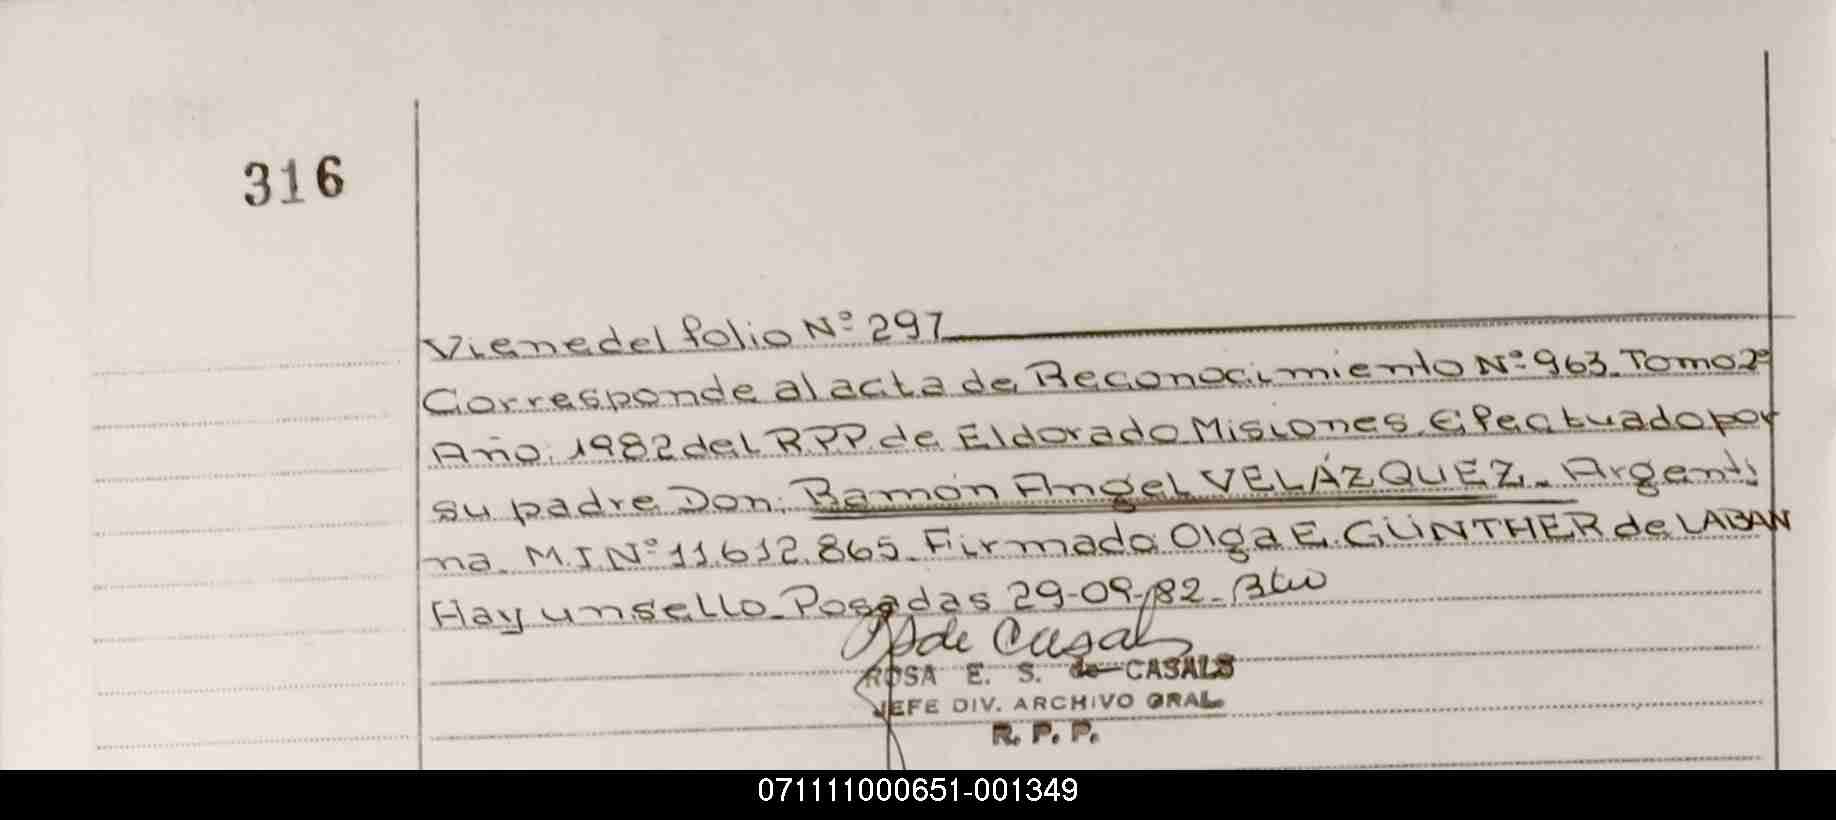 316
Viene del folio Nº 297
Corresponde al acta de Reconocimiento Nº 963. Tomo 2º
Año: 1982 del R.P.P. de Eldorado Misiones. Efectuado por
su padre Don: Ramón Angel VELÁZQUEZ.- Argenti
na. M.I. Nº 11.612.865. Firmado Olga E. GÜNTHER de LABAN
Hay un sello. Posadas 29-09-82.
de Casals
ROSA E. S. de CASALS
JEFE DIV. ARCHIVO GRAL.
R. P. P.
071111000651-001349